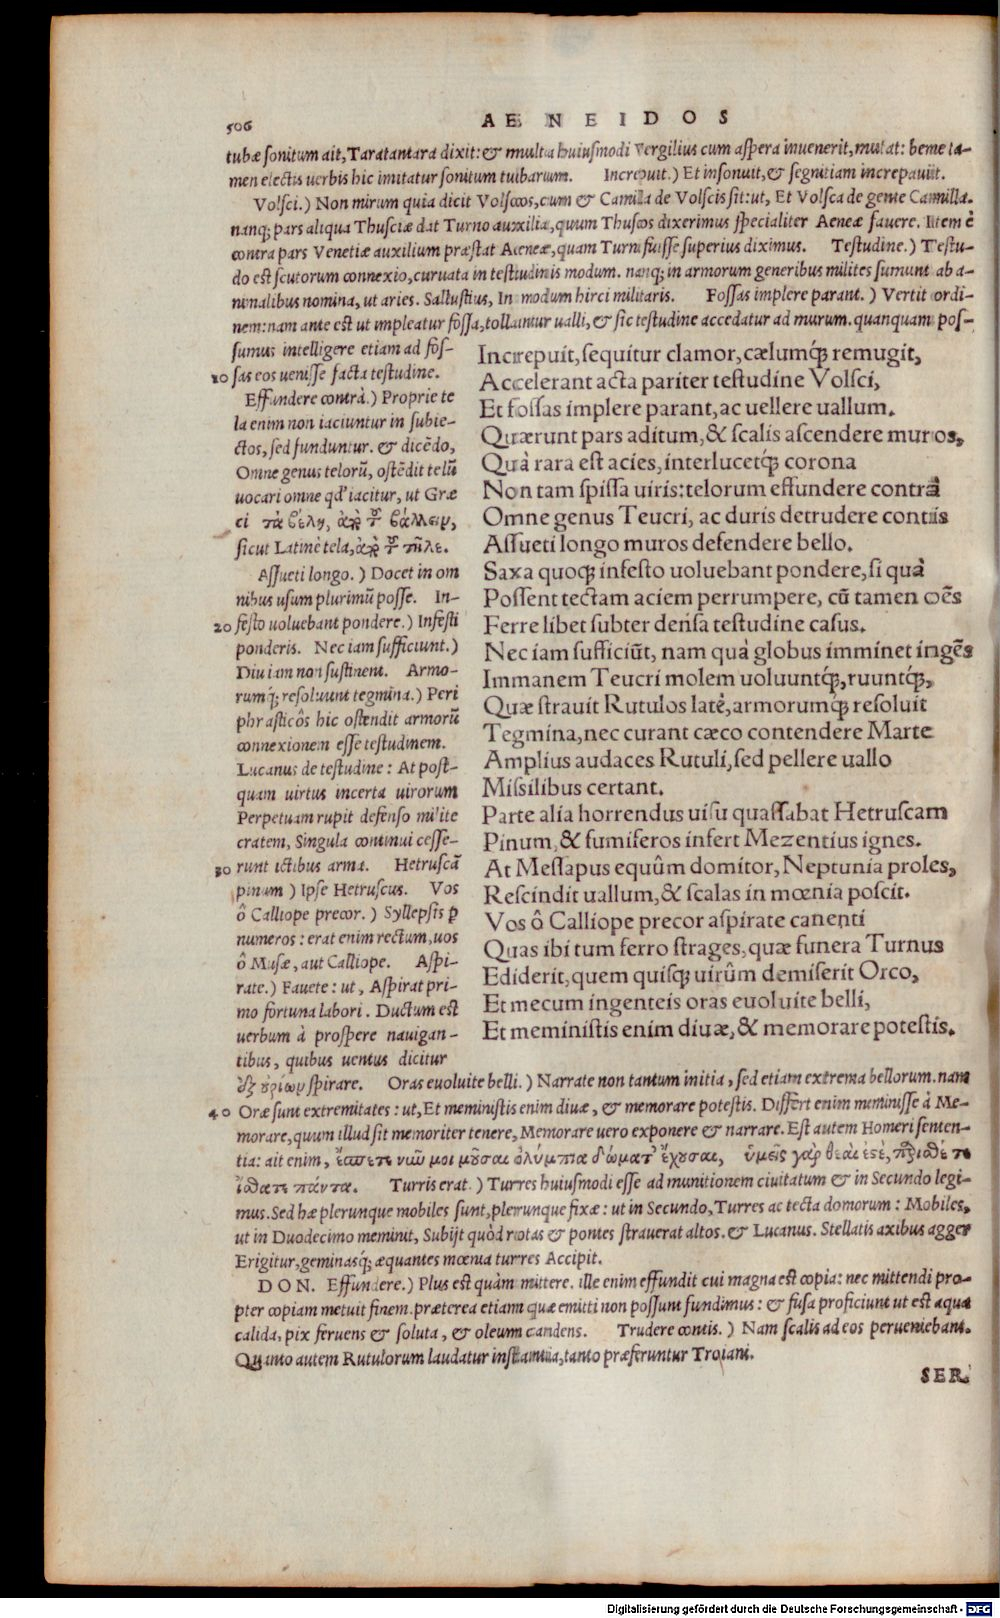 506
AENEIDOS
tubæ sonitum ait, Taratantara dixit: & multa huiusmodi Vergilius cum aspera inuenerit, mutat: bene ta-
men electis uerbis hic imitatur sonitum tubarum. Increpuit.) Et insonuit, & segnitiam increpauit.
Volsci.) Non mirum quia dicit Volscos, cum & Camilla de Volscis sit: ut, Et Volsca de gente Camilla.
nanq; pars aliqua Thusciæ dat Turno auxilia, quum Thuscos dixerimus specialiter Aeneæ fauere. Item è
contra pars Venetiæ auxilium præstat Aeneæ, quam Turni fuisse superius diximus. Testudine.) Testu-
do est scutorum connexio, curuata in testudinis modum. nanq; in armorum generibus milites sumunt ab a-
nimalibus nomina, ut aries. Sallustius, In modum hirci militaris. Fossas implere parant.) Vertit ordi-
nem: nam ante est ut impleatur fossa, tollantur ualli, & sic testudine accedatur ad murum. quanquam pos-
sumus intelligere etiam ad fos-
10 sas eos uenisse facta testudine.
Effundere contrà.) Proprie te
la enim non iaciuntur in subie-
ctos, sed funduntur. & dicēdo,
Omne genus telorū, ostēdit telū
uocari omne qd' iacitur, ut Græ
ci τὰ βέλη, ἀπὸ τοῦ βάλλειν,
sicut Latinè tela, ἀπὸ τοῦ τῆλε.
Assueti longo.) Docet in om
nibus usum plurimū posse. In-
20 festo uoluebant pondere.) Infesti
ponderis. Nec iam sufficiunt.)
Diu iam non sustinent. Armo-
rumq́; resoluunt tegmina.) Peri
phrasticôs hic ostendit armorū
connexionem esse testudinem.
Lucanus de testudine: At post-
quam uirtus incerta uirorum
Perpetuam rupit defenso milite
cratem, Singula continui cesse-
30 runt ictibus arma. Hetruscā
pinum) Ipse Hetruscus. Vos
ô Calliope precor.) Syllepsis p
numeros: erat enim rectum, uos
ô Musæ, aut Calliope. Aspi-
rate.) Fauete: ut, Aspirat pri-
mo fortuna labori. Ductum est
uerbum à prospere nauigan-
tibus, quibus uentus dicitur
Increpuit, sequitur clamor, cælumq́; remugit,
Accelerant acta pariter testudine Volsci,
Et fossas implere parant, ac uellere uallum.
Quærunt pars aditum, & scalis ascendere muros,
Quà rara est acies, interlucetq́; corona
Non tam spissa uiris: telorum effundere contrà
Omne genus Teucri, ac duris detrudere contis
Assueti longo muros defendere bello.
Saxa quoq; infesto uoluebant pondere, si quà
Possent tectam aciem perrumpere, cū tamen oēs
Ferre libet subter densa testudine casus.
Nec iam sufficiūt, nam quà globus imminet ingēs
Immanem Teucri molem uoluuntq́;, ruuntq́;,
Quæ strauit Rutulos latè, armorumq́; resoluit
Tegmina, nec curant cæco contendere Marte
Amplius audaces Rutuli, sed pellere uallo
Missilibus certant.
Parte alia horrendus uisu quassabat Hetruscam
Pinum, & fumiferos infert Mezentius ignes.
At Messapus equûm domitor, Neptunia proles,
Rescindit uallum, & scalas in mœnia poscit.
Vos ô Calliope precor aspirate canenti
Quas ibi tum ferro strages, quæ funera Turnus
Ediderit, quem quisq; uirûm demiserit Orco,
Et mecum ingenteis oras euoluite belli,
Et meministis enim diuæ, & memorare potestis.
spirare. Oras euoluite belli.) Narrate non tantum initia, sed etiam extrema bellorum. nam
40 Oræ sunt extremitates: ut, Et meministis enim diuæ, & memorare potestis. Differt enim meminisse à Me-
morare, quum illud sit memoriter tenere, Memorare uero exponere & narrare. Est autem Homeri senten-
tia: ait enim, ἔσπετε νῦν μοι μοῦσαι ὀλύμπια δώματ' ἔχουσαι, ὑμεῖς γάρ θεαὶ ἐστέ, πάρεστέ τε
ἴστέ τε πάντα. Turris erat.) Turres huiusmodi esse ad munitionem ciuitatum & in Secundo legi-
mus. Sed hæ plerunque mobiles sunt, plerunque fixæ: ut in Secundo, Turres ac tecta domorum: Mobiles,
ut in Duodecimo meminit, Subijt quòd rotas & pontes strauerat altos. & Lucanus. Stellatis axibus agger
Erigitur, geminasq́; æquantes mœnia turres Accipit.
DON. Effundere.) Plus est quàm mittere. ille enim effundit cui magna est copia: nec mittendi pro-
pter copiam metuit finem. præterea etiam quæ emitti non possunt fundimus: & fusa proficiunt ut est aqua
calida, pix feruens & soluta, & oleum candens. Trudere contis.) Nam scalis ad eos perueniebant.
Quanto autem Rutulorum laudatur instantia, tanto præferuntur Troiani.
SER.
Digitalisierung gefördert durch die Deutsche Forschungsgemeinschaft - DFG